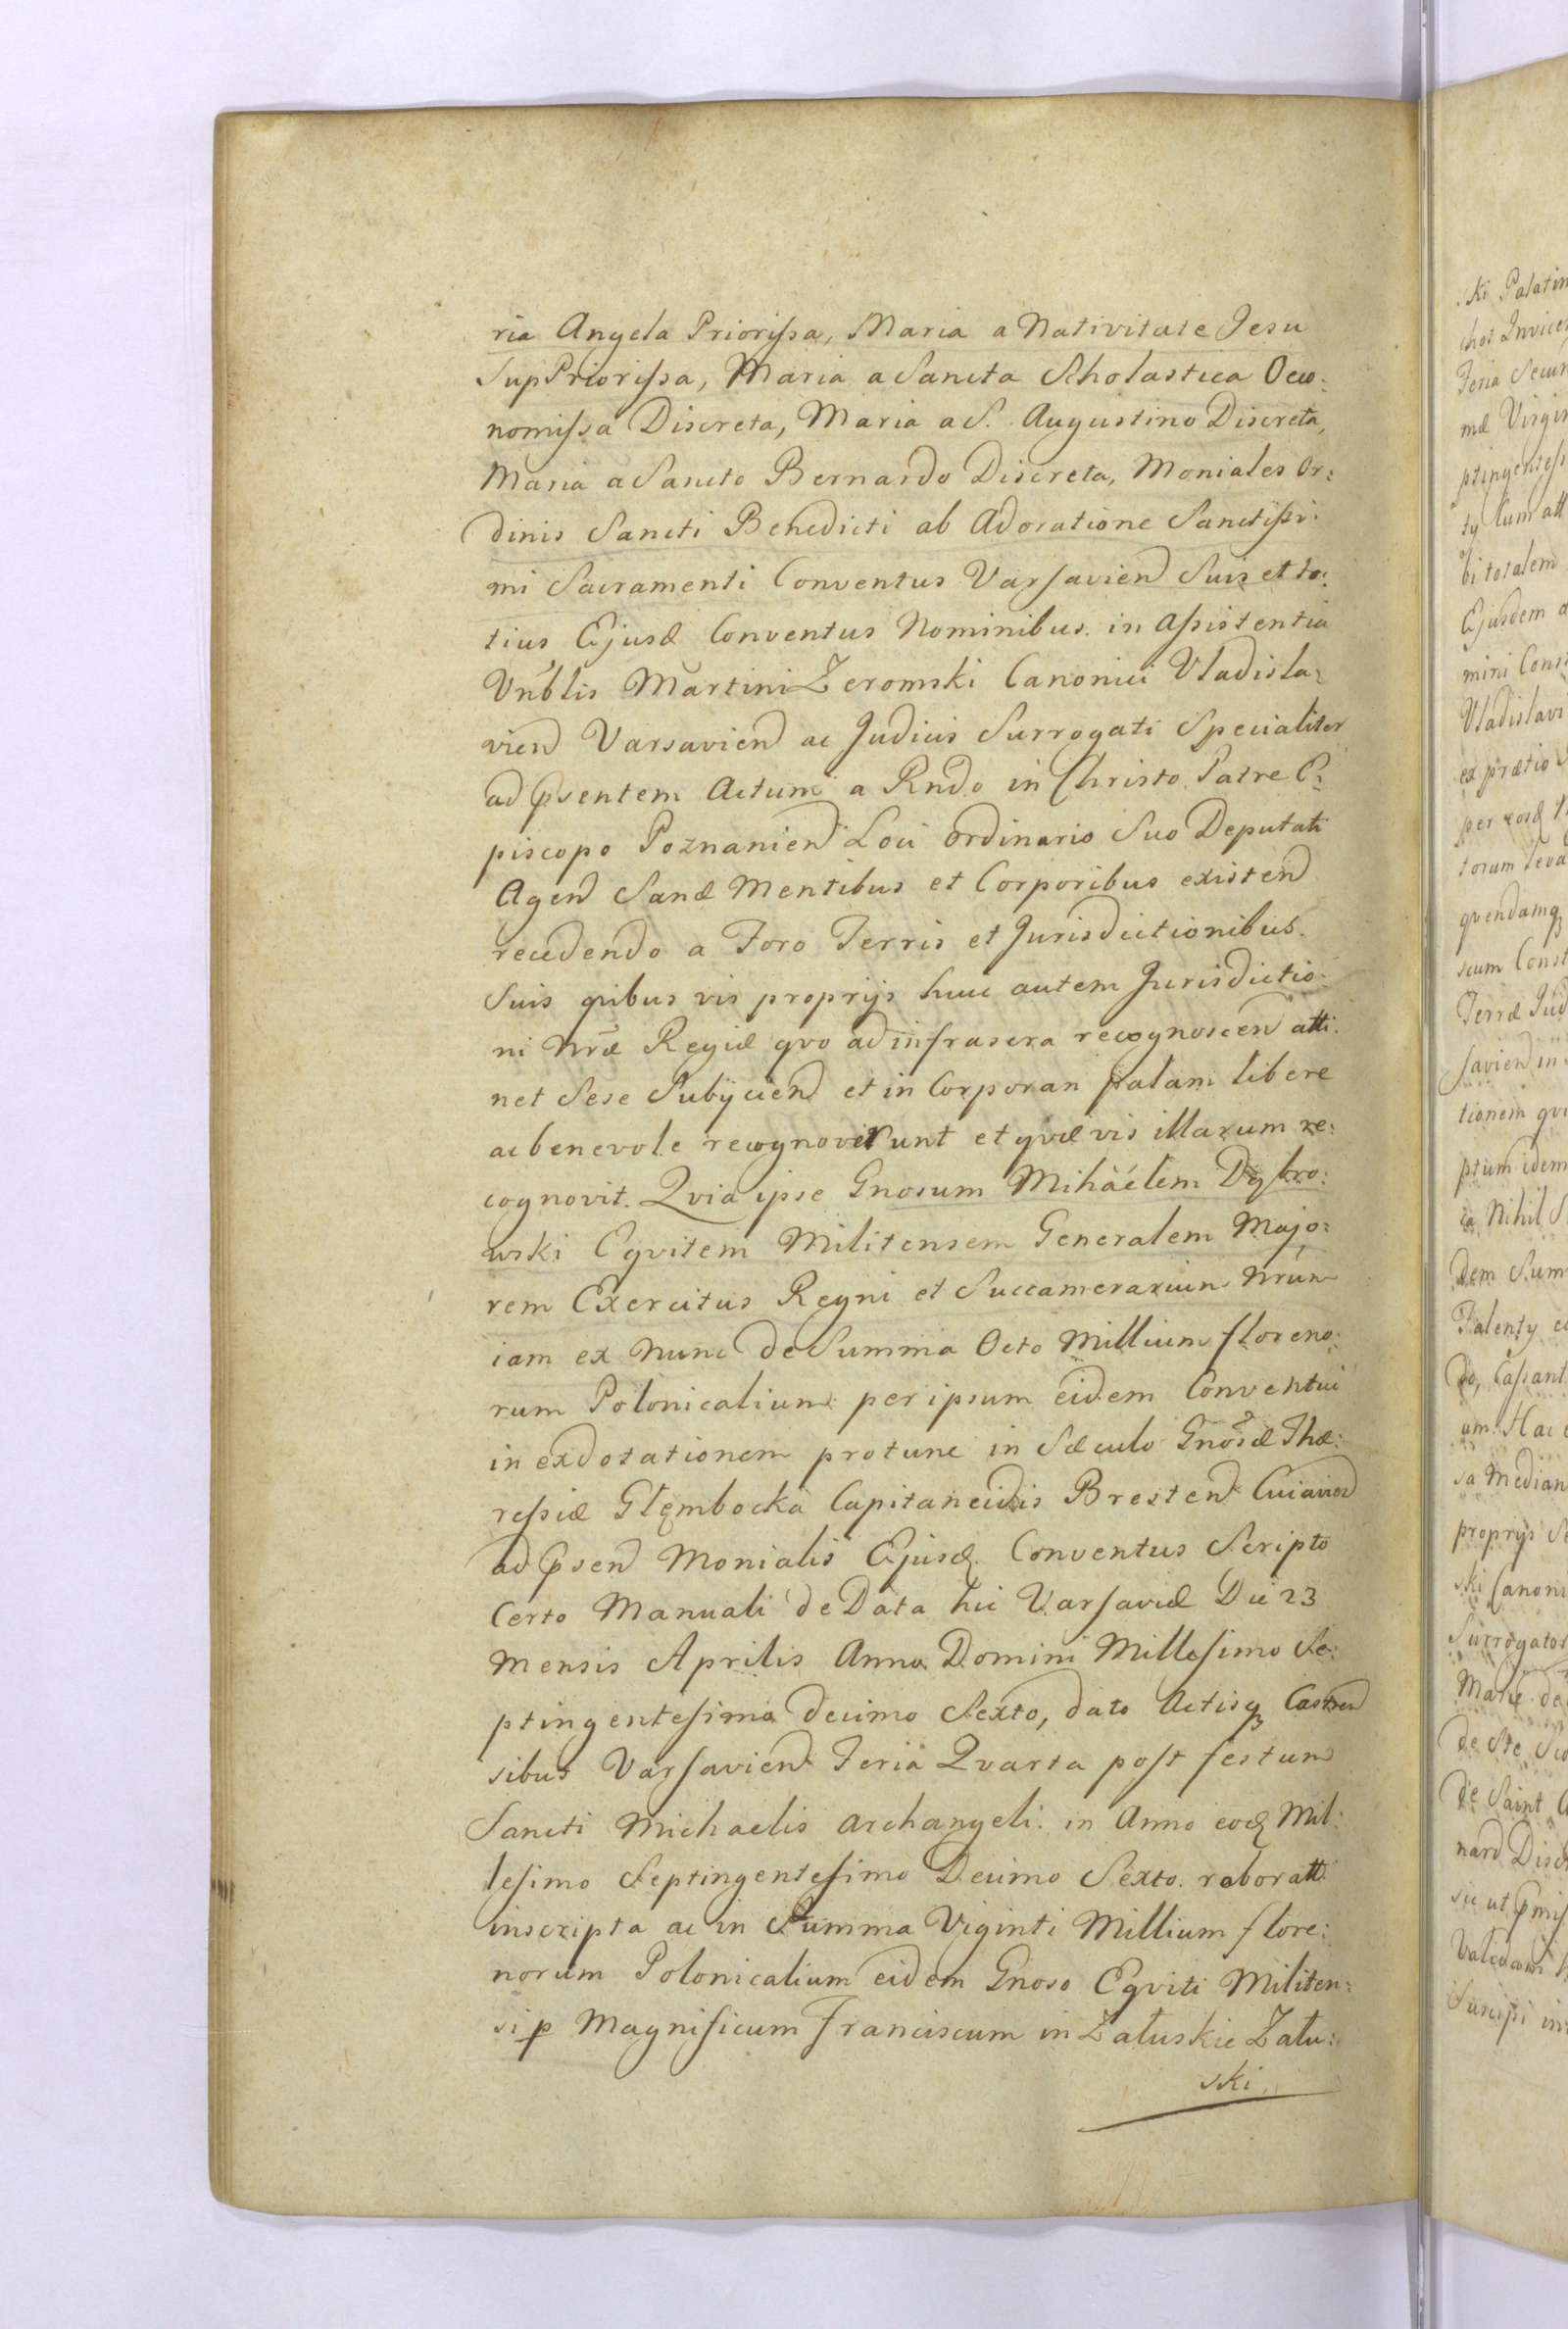 ria Angela Priorissa, Maria a Nativitate Jesu
SupPriorissa, Maria a Sancta Scholastica Oeco:
nomissa Discreta, Maria a S. Augustino Discreta,
Maria a Sancto Bernardo Discreta, Moniales Or:
dinis Sancti Benedicti ab Adoratione Sanctissi:
mi Sacramenti Conventus Varsavien Suis et to:
tius Ejusd Conventus Nominibus in Assistentia
Vnblis Martini Zeromski Canonici Vladisla:
vien Varsavien ac Judicis Surrogati Specialiter
ad psentem Actum a Rndo in Christo Patre E:
piscopo Poznanien Loci ordinario Suo Deputati
Agen Sanæ Mentibus et Corporibus existen
recedendo a Foro Terris et Jurisdictionibus
Suis quibus vis proprijs huic autem Jurisdictio:
ni Nræ Regiæ qvo ad infrascra recognoscen atti:
net Sese Subijcien et in Corporan palam libere
ac benevole recognoverunt et qvævis illarum re:
cognovit. Qvia ipse Gnosum Mihäélem Dą̨bro:
wski Eqvitem Militensem Generalem Majo:
rem Exercitus Regni et Succamerarium Nrum
iam ex nunc de Summa Octo Millium floreno:
rum Polonicalium per ipsum eidem Conventui
in exdotationem protunc in Sæculo Gnosæ The:
ressiæ Głęmbocka Capitaneidis Bresten Cuiavien
ad psen Monialis Ejusd Conventus Scripto
Certo Manuali de Data hic Varsaviæ Die 23
Mensis Aprilis Anno Domini Millesimo Se:
ptingentesimo decimo Sexto, dato Actisq Castren
sibus Varsavien Feria Qvarta post festum
Sancti Michaelis Archangeli in Anno eod Mil:
lesimo Septingentesimo Decimo Sexto roboratt
inscripta ac in Summa Viginti Millium flore:
norum Polonicalium eidem Gnoso Eqviti Militen:
si p Magnificum Franciscum in Załuskie Zału:
ski
ki Palatin
mæ Virgin
bi totalem
Ejusdem
Vladislavi
ex prætio
per eosd
torum leva
qvendamq
Terræ
savien in
tionem
ptum idem
Nihil
dem Sum
um Hac
sa Median
proprijs
ski Canoni
Surrogator
Marie de
de Ste
de Saint
nard
sic ut pmis
Suscepi